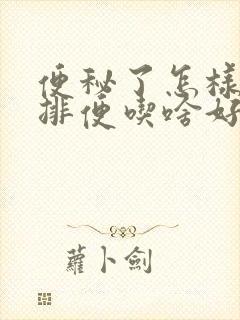 便秘了怎樣
排便喫啥好
蘿卜劍